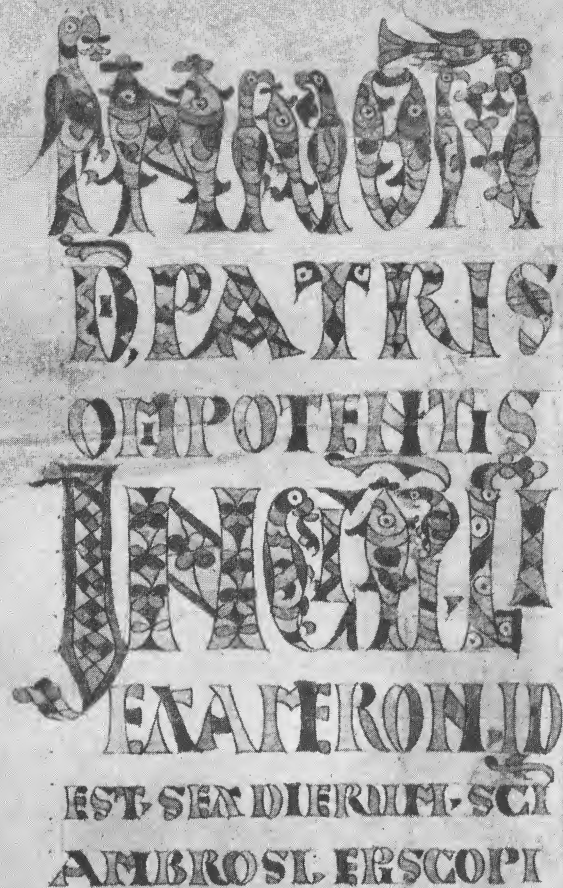 IN NOM
DI, PATRIS
OMIPOTENTIS
INCP LI
EXAMERON. ID
EST. SEX DIERUM. SCI
AMBROSI. EPISCOPI